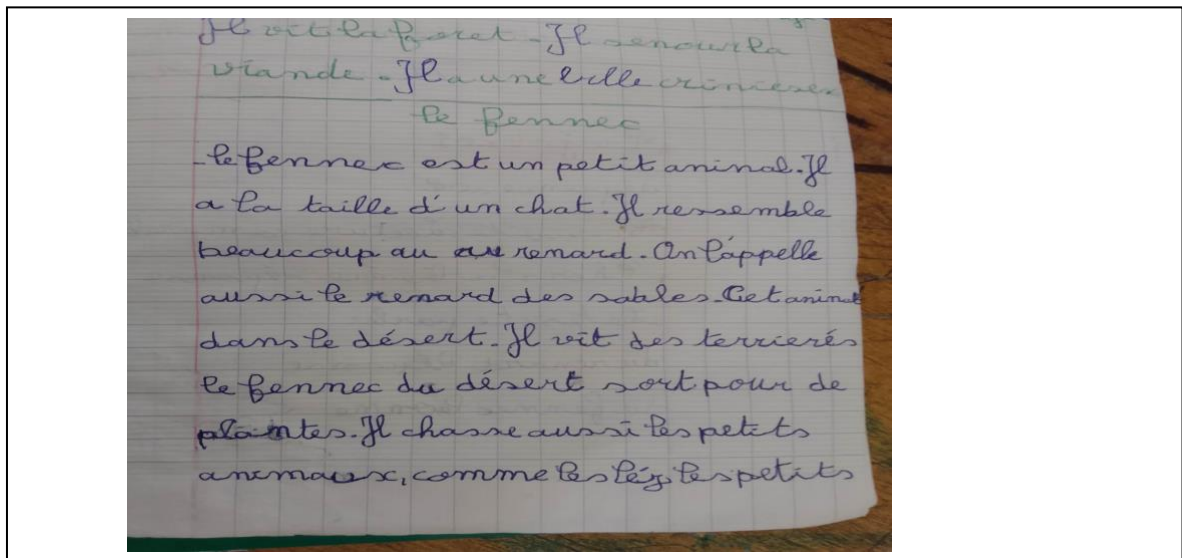 Il vit la foret - Il senour la
viande - Il a une belle criniere
le fennec
le fennec est un petit aninal. Il
a la taille d'un chat. Il ressemble
beaucoup au au renard. On l'appelle
aussi le renard des sables. Cet aninal
dans le désert. Il vit des terrierés
le fennec du désert sort pour de
plantes. Il chasse aussi les petits
animaux, comme les léz, les petits